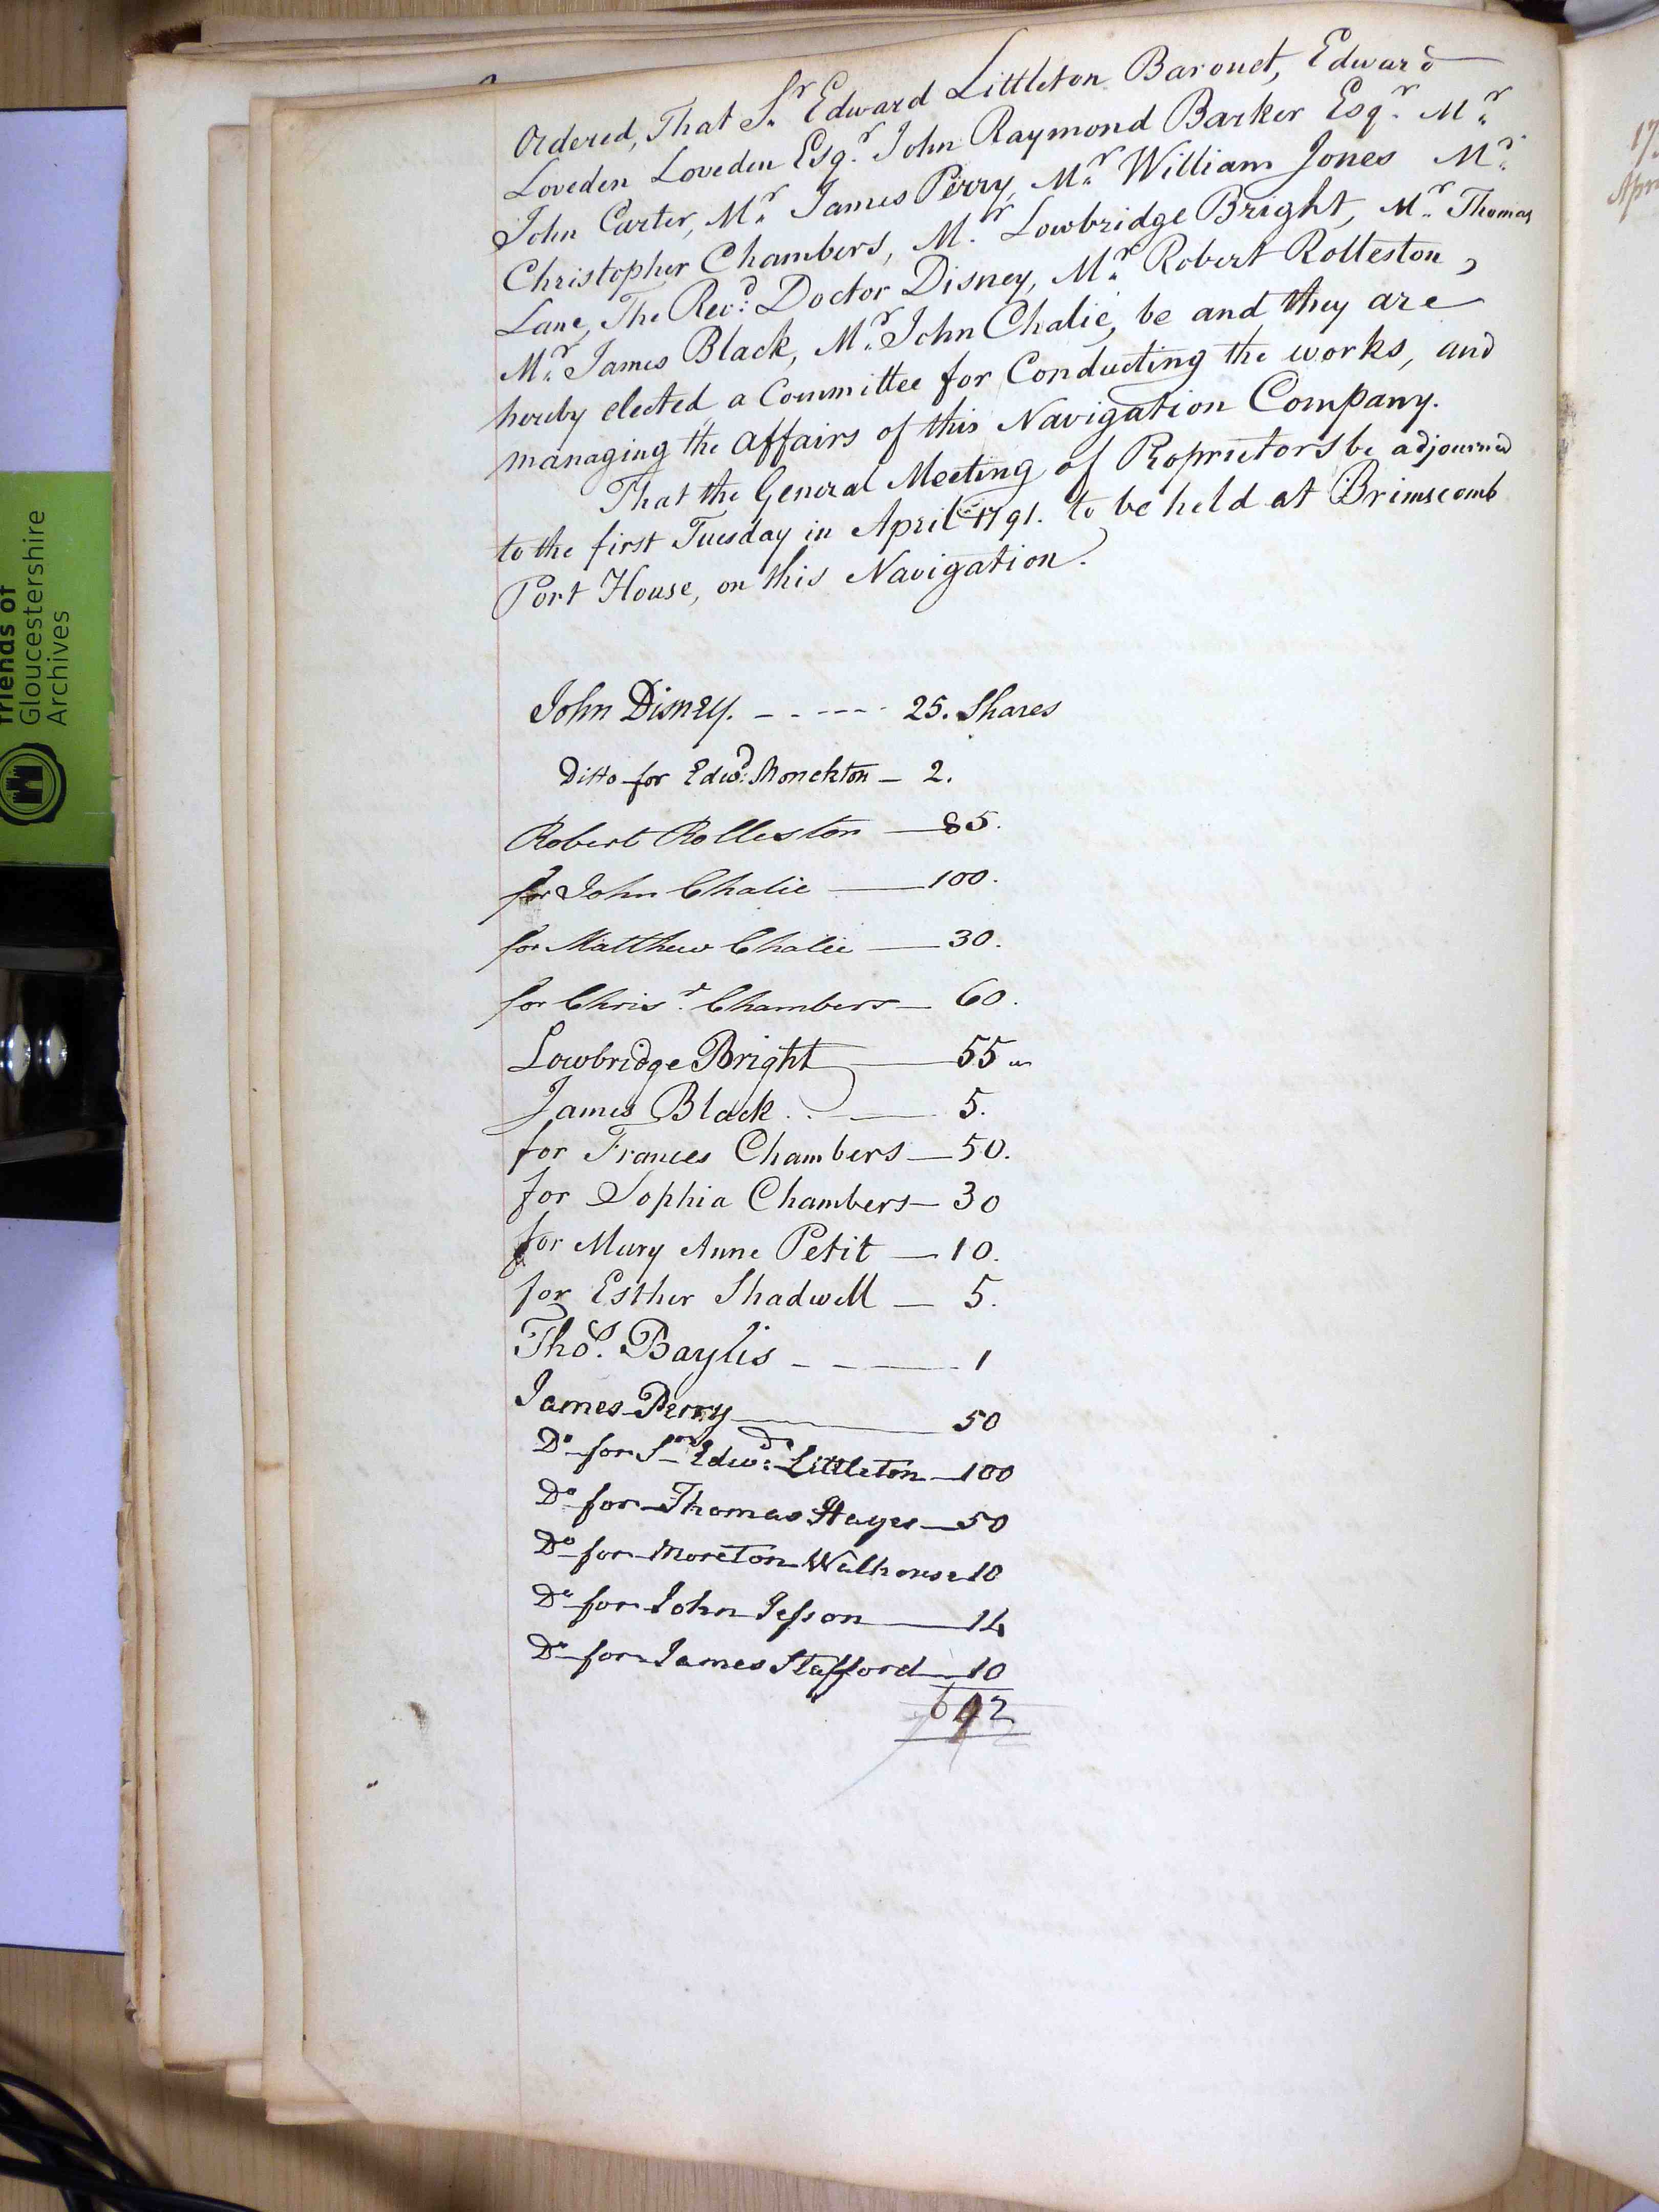 Ordered, That Sr. Edward Littleton Baronet, Edward
Loveden Loveden Esqr. John Raymond Barker Esqr. Mr.
John Carter, Mr. James Perry, Mr. William Jones Mr.
Christopher Chambers, Mr. Lowbridge Bright, Mr. Thomas
Lane, The Revd. Doctor Disney, Mr. Robert Rolleston,
Mr. James Black, Mr. John Chalié, be and they are
hereby elected a Committee for Conducting the works, and
managing the affairs of this Navigation Company.
That the General Meeting of Proprietors be adjourned
to the first Tuesday in April 1791. to be held at Brimscomb
Port House, on this Navigation.
John Disney. - - - - - 25. Shares
Ditto for Edwd: Monckton - 2.
Robert Rolleston — 85.
for John Chalie — 100.
for Matthew Chalie — 30.
for Chrisr. Chambers — 60.
Lowbridge Bright — 55
James Black . . — 5.
for Frances Chambers — 50.
for Sophia Chambers — 30
for Mary Anne Petit — 10.
for Esther Shadwell — 5.
Thos. Baylis - - — 1
James Perry — 50
Do for Sr Edwd: Littleton — 100
Do for Thomas Hayes — 50
Do for Moreton Walhouse 10
Do for John Jesson — 14
Do for James Stafford — 10
692
friends of
Gloucestershire
Archives
17
Apr